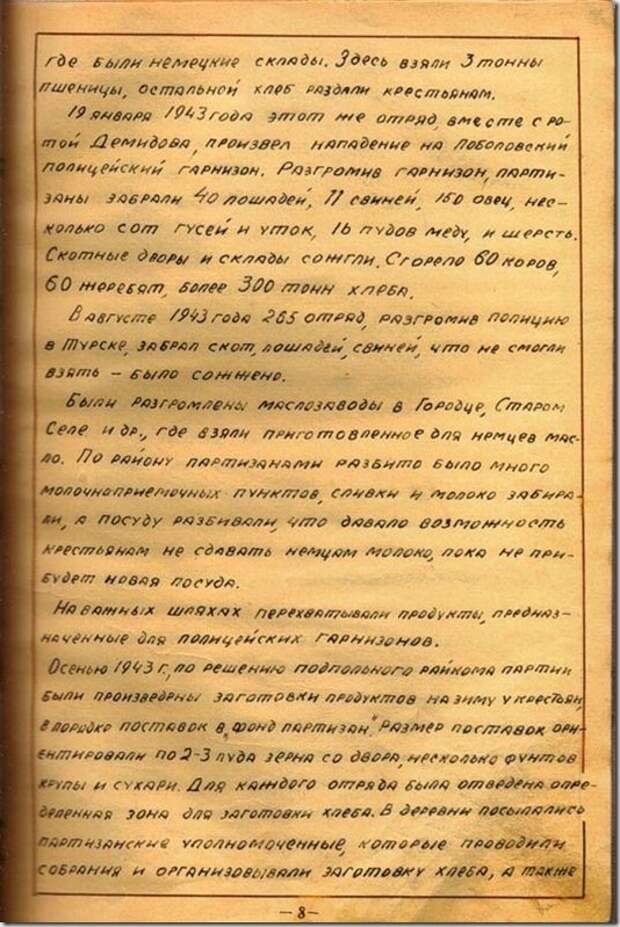 где были немецкие склады. Здесь взяли 3 тонны
пшеницы, остальной хлеб раздали крестьянам.
19 января 1943 года этот же отряд, вместе с ро-
той Демидова, произвел нападение на Лоболовский
полицейский гарнизон. Разгромив гарнизон, парти-
заны забрали 40 лошадей, 11 свиней, 150 овец, нес-
колько сот гусей и уток, 16 пудов меду, и шерсть.
Скотные дворы и склады сожгли. Сгорело 60 коров,
60 жеребят, более 300 тонн хлеба.
В августе 1943 года 265 отряд, разгромив полицию
в Турске, забрал скот, лошадей, свиней, что не смогли
взять – было сожжено.
Были разгромлены маслозаводы в Городце, Старом
Селе и др., где взяли приготовленное для немцев мас-
ло. По району партизанами разбито было много
молочноприемочных пунктов, сливки и молоко забира-
ли, а посуду разбивали, что давало возможность
крестьянам не сдавать немцам молоко, пока не при-
будет новая посуда.
На важных шляхах перехватывали продукты, предназ-
наченные для полицейских гарнизонов.
Осенью 1943 г., по решению подпольного райкома партии
были произведены заготовки продуктов на зиму у крестьян,
в порядке поставок в „фонд партизан". Размер поставок ори-
ентировали по 2-3 пуда зерна со двора, несколько фунтов
крупы и сухари. Для каждого отряда была отведена опре-
деленная зона для заготовки хлеба. В деревни посылались
партизанские уполномоченные, которые проводили
собрания и организовывали заготовку хлеба, а также
– 8 –